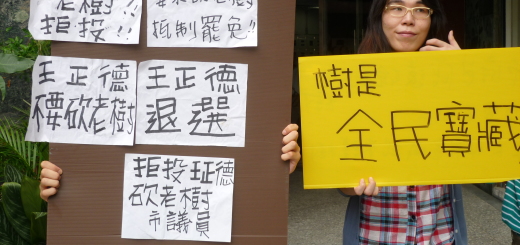 老樹!!
拒投!!
抵制罷免!!
王正德
不要砍老樹
王正德
退選
拒投王正德
砍老樹
市議員
樹是
全民寶藏